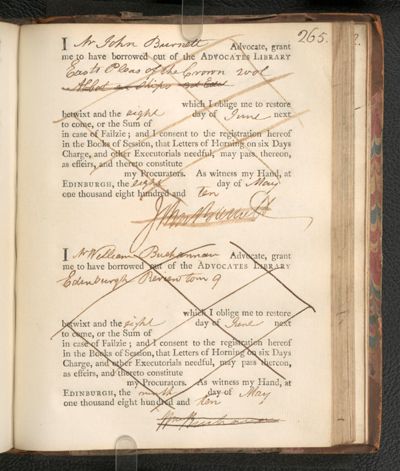 265.
I Mr John Burnett Advocate, grant
me to have borrowed out of the ADVOCATES LIBRARY
East's Pleas of the Crown 2 vol
Abbot on Ships 2d Edn
which I oblige me to restore
betwixt and the eight day of June next
to come, or the Sum of
in case of Failzie; and I consent to the registration hereof
in the Books of Session, that Letters of Horning on six Days
Charge, and other Executorials needful, may pass thereon,
as effeirs, and thereto constitute
my Procurators. As witness my Hand, at
EDINBURGH, the eight day of May
one thousand eight hundred and ten
John Burnett
I Mr William Buchannan Advocate, grant
me to have borrowed out of the ADVOCATES LIBRARY
Edinburgh Review tom 9
which I oblige me to restore
betwixt and the eight day of June next
to come, or the Sum of
in case of Failzie; and I consent to the registration hereof
in the Books of Session, that Letters of Horning on six Days
Charge, and other Executorials needful, may pass thereon,
as effeirs, and thereto constitute
my Procurators. As witness my Hand, at
EDINBURGH, the ninth day of May
one thousand eight hundred and ten
Wm Buchanan